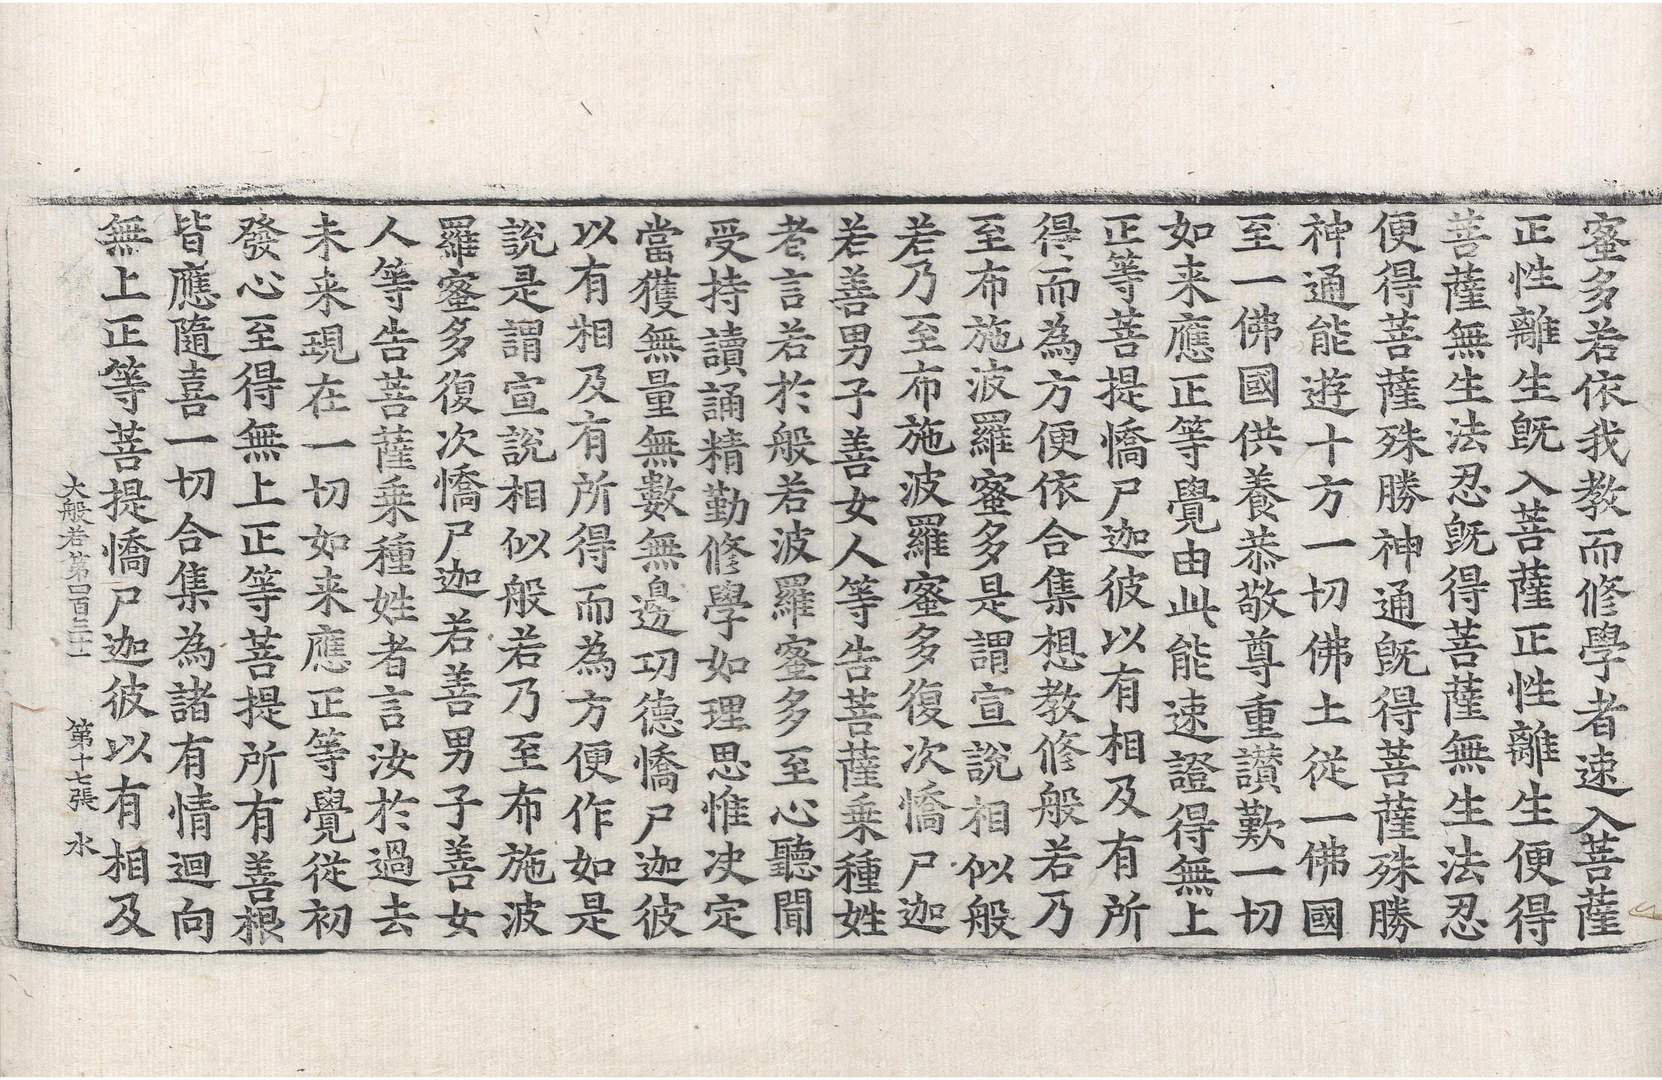 蜜多若依我教而修學者速入菩薩
正性離生旣入菩薩正性離生便得
菩薩無生法忍旣得菩薩無生法忍
便得菩薩殊勝神通旣得菩薩殊勝
神通能遊十方一切佛土從一佛國
至一佛國供養恭敬尊重讃歎一切
如来應正等覺由此能速證得無上
正等菩提憍尸迦彼以有相及有所
得而為方便依合集想教修般若乃
至布施波羅蜜多是謂宣說相似般
若乃至布施波羅蜜多復次憍尸迦
若善男子善女人等告菩薩乘種姓
者言若於般若波羅蜜多至心聽聞
受持讀誦精勤修學如理思惟决定
當獲無量無數無邊功德憍尸迦彼
以有相及有所得而為方便作如是
說是謂宣說相似般若乃至布施波
羅蜜多復次憍尸迦若善男子善女
人等告菩薩乘種姓者言汝於過去
未来現在一切如来應正等覺從初
發心至得無上正等菩提所有善根
皆應隨喜一切合集為諸有情迴向
無上正等菩提憍尸迦彼以有相及
大般若第四百三十一 第十七張 水